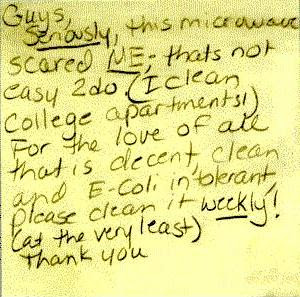 Guys,
Seriously, this microwave
scared ME; thats not
easy 2do. (I clean
college apartments!)
For the love of all
that is decent, clean
and E-Coli intolerant,
please clean it weekly!
(at the very least)
Thank you